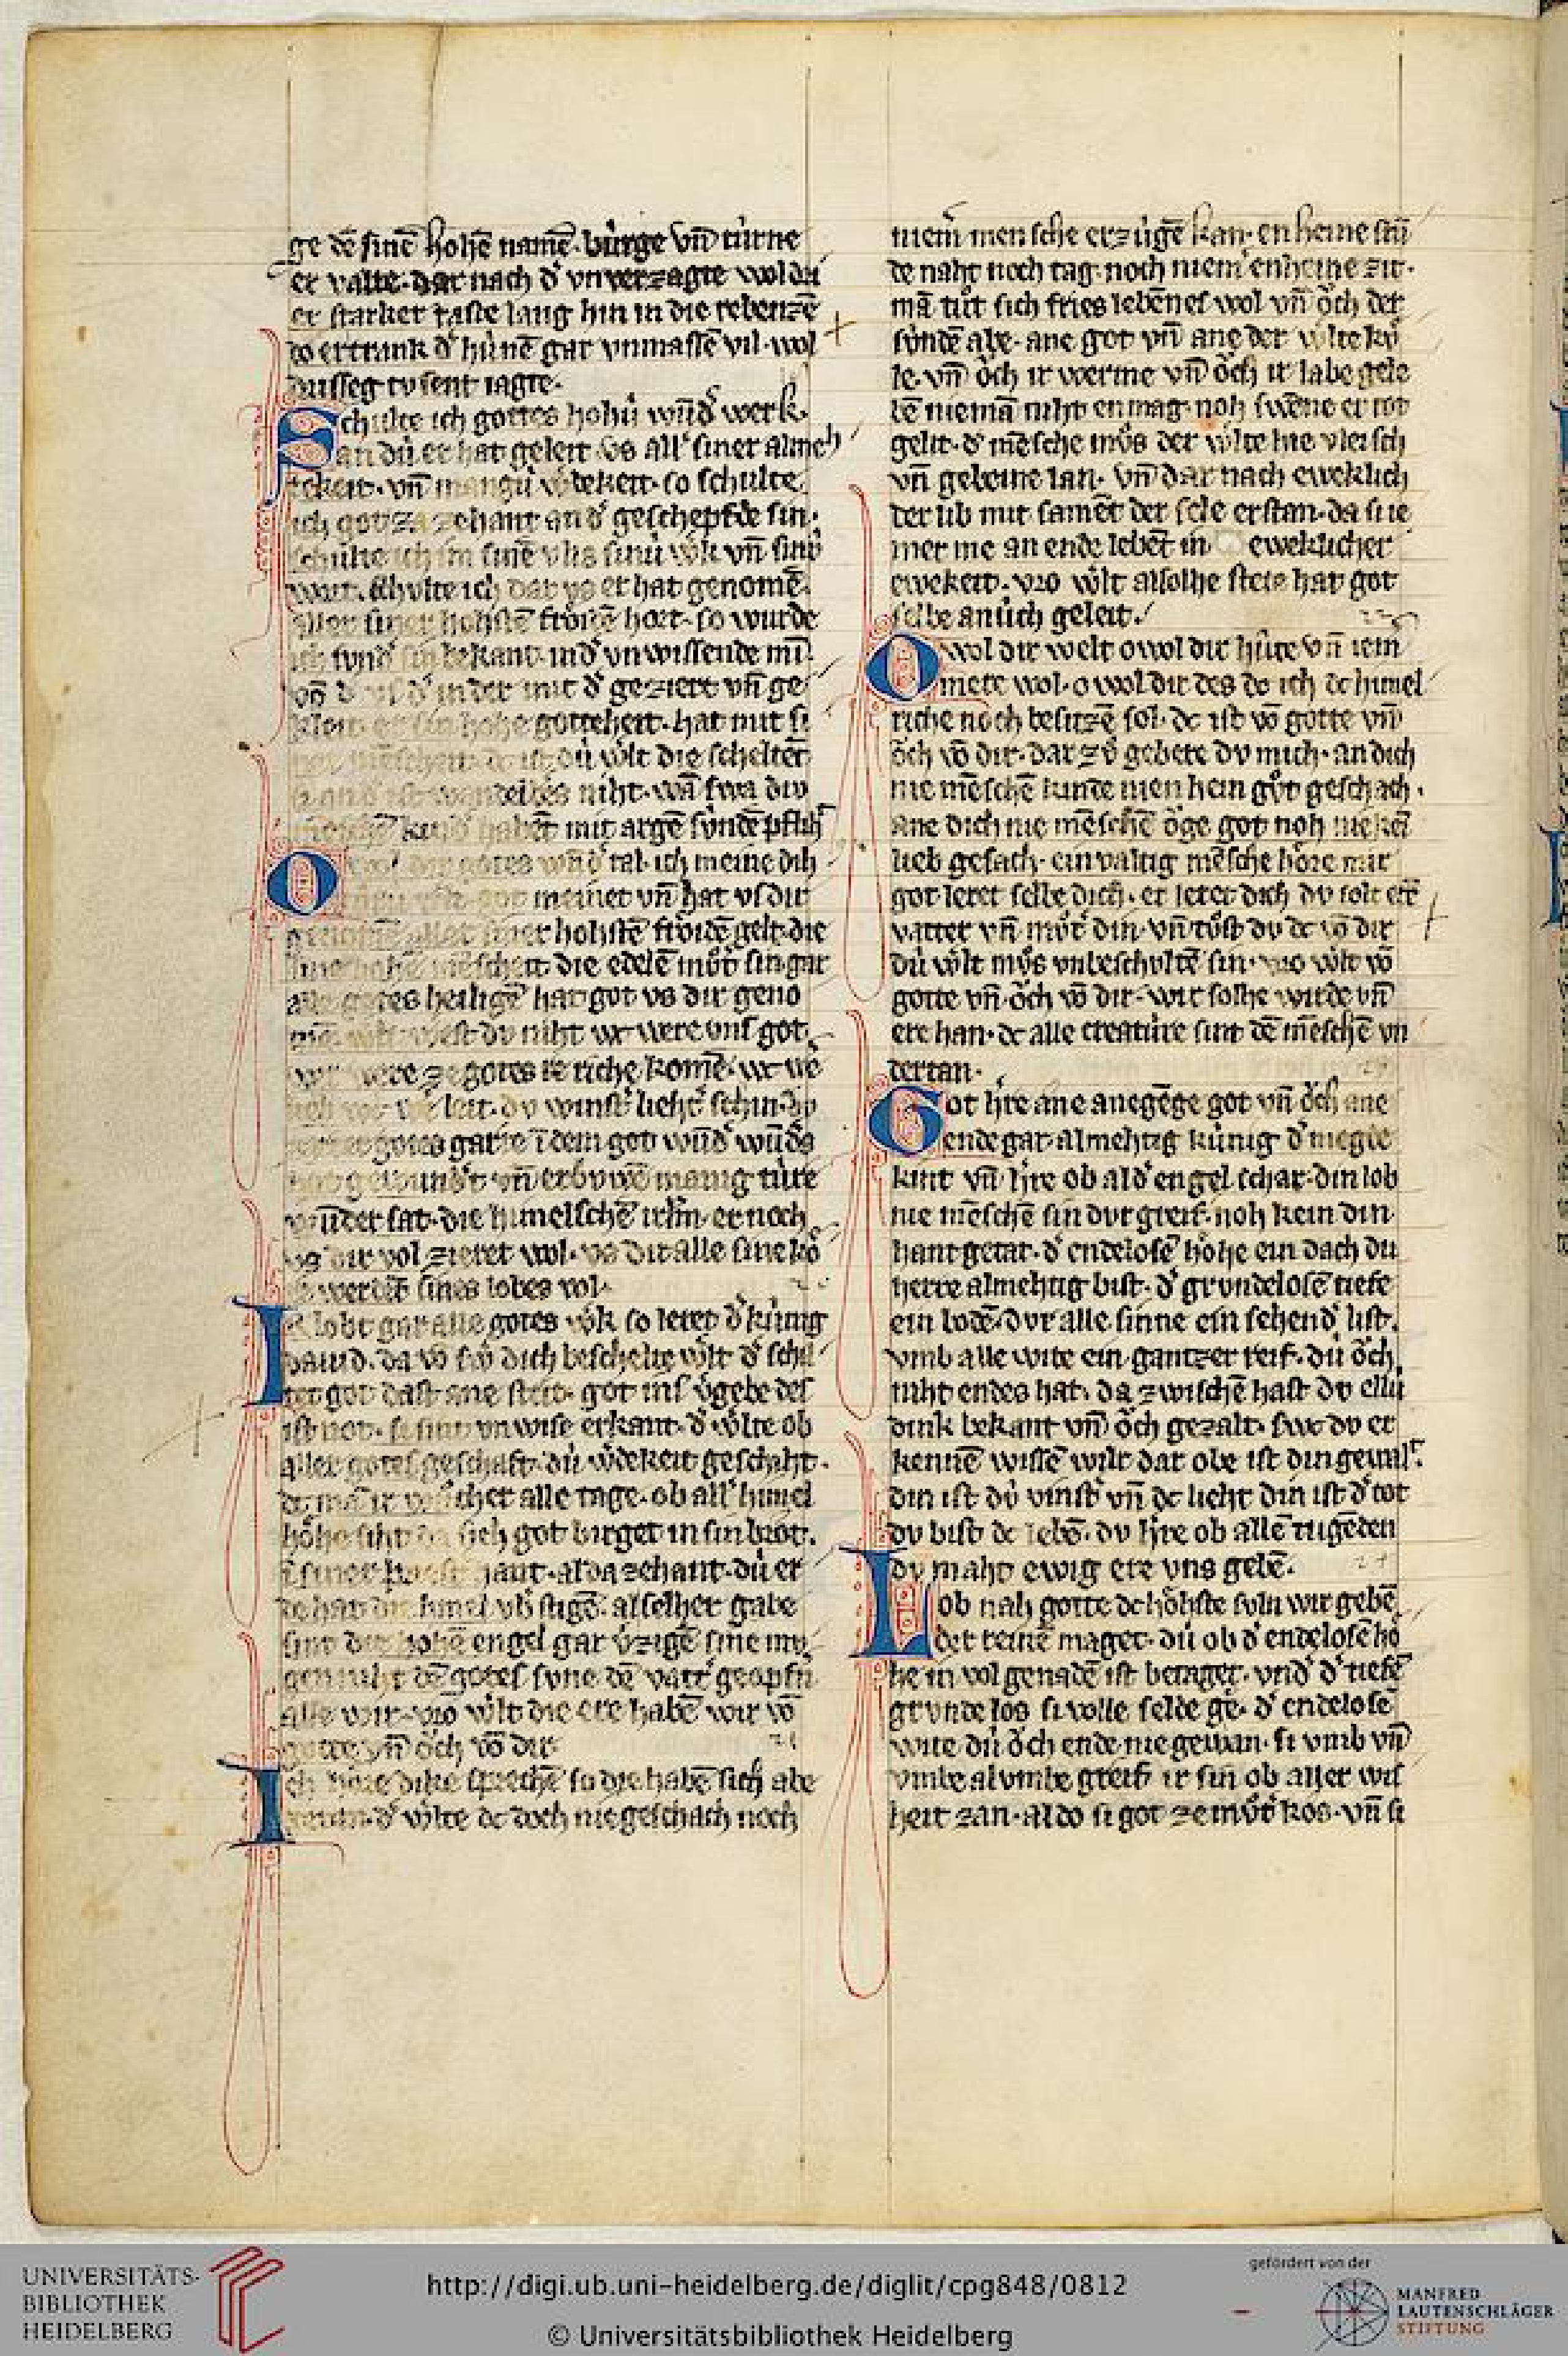 ge dē sinē hohē namē. bùrge vn̄ tùrne
er valte. dar nach d͛ vnverzagte wol da
er starker faste lang hin in die rebenzē
do ertrank d͛ hùnē gar vnmassē vil. wol
drisseg tvsent iagte.
Schulte ich gottes hohù wnd͛ werk.
an dù er hat geleit vs all͛ siner almeh
tekeit. vn̄ so schulte
ich got za zehant an d͛ geschepfde sin.
schulte ich im sinē vn̄
wort. schulte ich dar vs er hat genomē
aller siner hohstē frōidē hort. so wurde
ich bekant. ind͛ vnwissende mī
in der mit d͛ geziert vn̄ ge
kleit er sin hohe gotteheit. hat mit si
dù wl͛t die scheltēt
niht. wā swa div
habēt mit argē sùndē pfliht
O gotes wnd͛ tal. ich meine dih
got meinet vn̄ hat vs dir
genomē aller siner hohstē frōidē gelt. die
die edelē mv̊t͛ sin. gar
alle gotes heiligē hat got vs dir geno
mē. west dv niht wc were vns got.
were ze gotes riche komē. wc we
leit. dv winst͛ lieht͛ schin. dv
gotes garte ī dem got wnd͛ wnd͛s
hat gewund͛t. vn̄ manig tùre
wūder sat. die himelschē irlm̄. er noch
vs dir vol zieret wol. vs dir alle sine kō
werdēt sines lobes vol.
Ir lobt gar alle gotes w͛k so leret d͛ kùnig
david. da vō swͦ dich beschelte wl͛t d͛ schil
tet got dast ane strit. got ins v͛gebe des
ist not. si sint vnwise erkant. d͛ wl͛te ob
aller gotes geschaft. dù w͛dekeit geschiht.
alle tage. ob all͛ himel
hōhe siht da sich got birget in sin brot.
ī siner hant. alda zehant. dù er
de hat die himel vb͛ stigē. al selher gabe
sint die hohē engel gar v͛zigē sine mv
gen niht dē gotes svne dē vatt͛ geopfn͛
alle wir. vro wl͛t die ere habē wir vō
gotte vn̄ ōch vō dir
Ich hōre dike sprechē so die habē sich abe
getan. d͛ wl͛te dc doch nie geschach noch
niem͛ mensche erzùgē kan. enheine stū
de naht noch tag. noch niem͛ enheine zit.
mā tùt sich fries lebēnes wol vn̄ ōch der
sùndē abe. ane got vn̄ ane der wl͛te kv̊
le. vn̄ ōch ir werme vn̄ ōch ir labe gele
bē niemā niht en mag. noh swēne er tot
gelit. d͛ mēsche mv̊s der wl͛te hie vleisch
vn̄ gebeine lan. vn̄ dar nach eweklich
der lib mit samēt der sele erstan. da si ie
mer me an ende lebēt in eweklicher
ewekeit. vro wl͛t alsolhe stete hat got
selbe an ùch geleit.
O wol dir welt owol dir hùte vn̄ iem͛
mere wol. o wol dir des dc ich dc himel
riche noch besitzē sol. dc ist vō gotte vn̄
ōch vō dir. dar zv̊ gebere dv mich. an dich
nie mēschē kinde nien hein gv̊t geschach.
ane dich nie mēschē ōge got noh nie kein
lieb gesach. einvaltig mēsche hōre mir
got leret selbe dich. er leret dich dv solt ern̄
vatter vn̄ mv̊t͛ din. vn̄ tv̊st dv dc vō dir
dù wl͛t mv̊s vnbescholtē sin. vro wl͛t vō
gotte vn̄ ōch vō dir. wir solhe wirde vn̄
ere han. dc alle creatùre sint dē mēschē vn
dertan.
Got h͛re ane anegēge got vn̄ ōch ane
ende gar. almehtig kùnig d͛ megde
kint vn̄ h͛re ob al d͛ engel schar. din lob
nie mēschē sin dvrgreif. noh kein din
hant getat. d͛ endelosē hōhe ein dach du
herre almehtig bist. d͛ grvndelosē tiefe
ein bodē. dvr alle sinne ein sehend͛ list.
vmb alle wite ein gantzer reif. dù ōch
niht endes hat. da zwischē hast dv ellù
dink bekant vn̄ ōch gezalt. swc dv er
kennē wissē wilt dar obe ist din gewalt.
din ist dù vinst͛ vn̄ dc lieht din ist d͛ tot
dv bist dc lebē. dv h͛re ob allē tugēden
dv maht ewig ere vns gebē.
Lob nah gotte dc hōhste svln wir gebē
der reinē maget. dù ob d͛ endelosē hō
he in vol genadē ist betaget. vnd͛ d͛ tiefē
grvndelos si volle selde ge. d͛ endelosē
wite dù ōch ende nie gewan. si vmb vn̄
vmbe al vmbe greif. ir sin ob aller wis
heit zan. al do si got ze mv̊t͛ kos. vn̄ si
UNIVERSITÄTS-
BIBLIOTHEK
HEIDELBERG
http://digi.ub.uni-heidelberg.de/diglit/cpg848/0812
© Universitätsbibliothek Heidelberg
gefördert von der
MANFRED
LAUTENSCHLÄGER
STIFTUNG